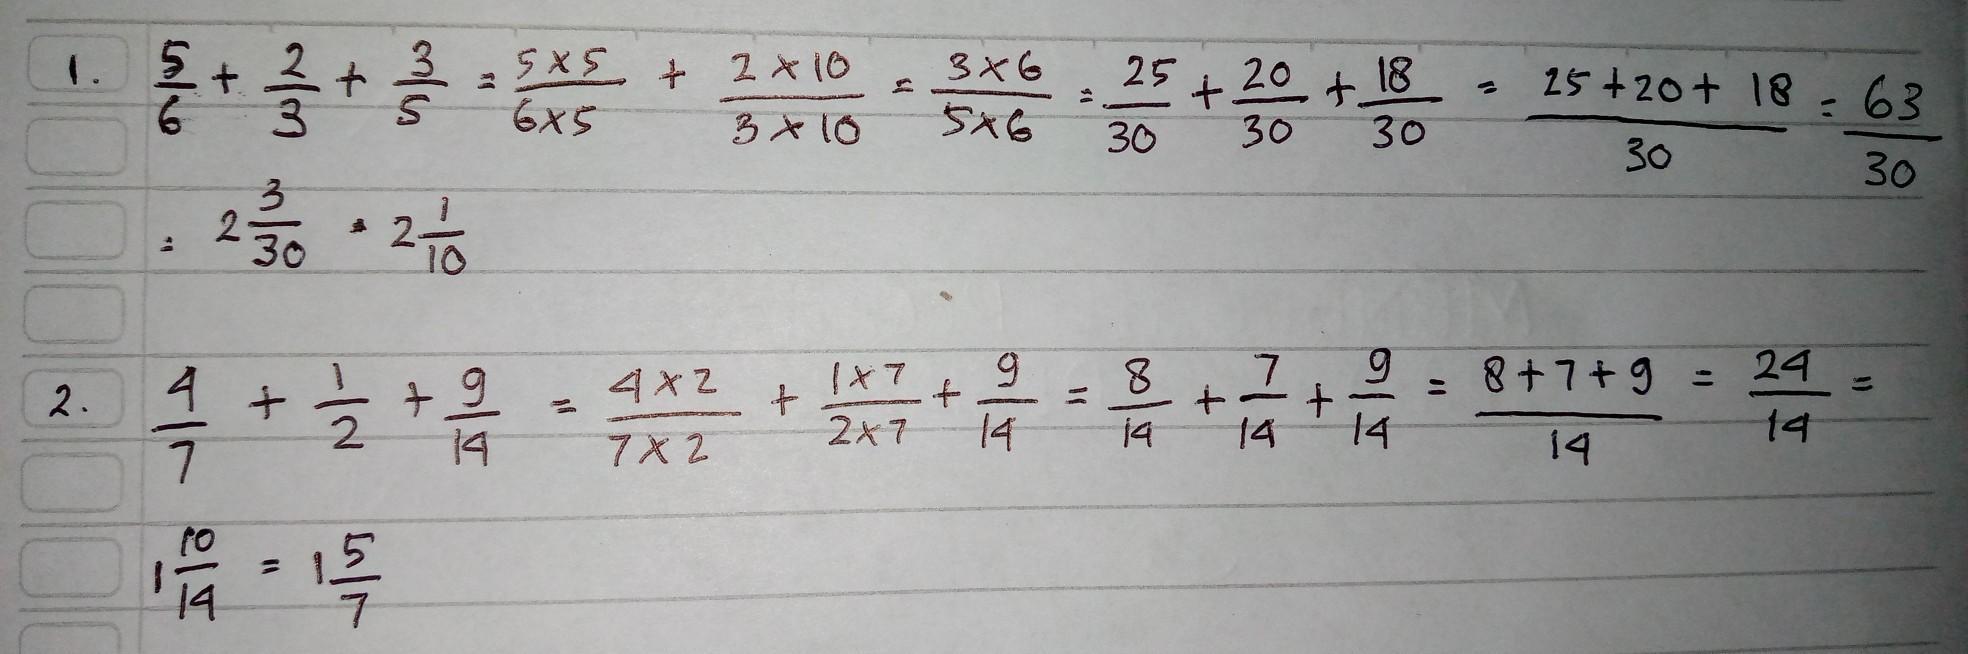 1. 5/6 + 2/3 + 3/5 = 5×5/6×5 + 2×10/3×10 = 3×6/5×6 = 25/30 + 20/30 + 18/30 = 25+20+18/30 = 63/30
= 2 3/30 = 2 1/10
2. 4/7 + 1/2 + 9/14 = 4×2/7×2 + 1×7/2×7 + 9/14 = 8/14 + 7/14 + 9/14 = 8+7+9/14 = 24/14 =
1 10/14 = 1 5/7